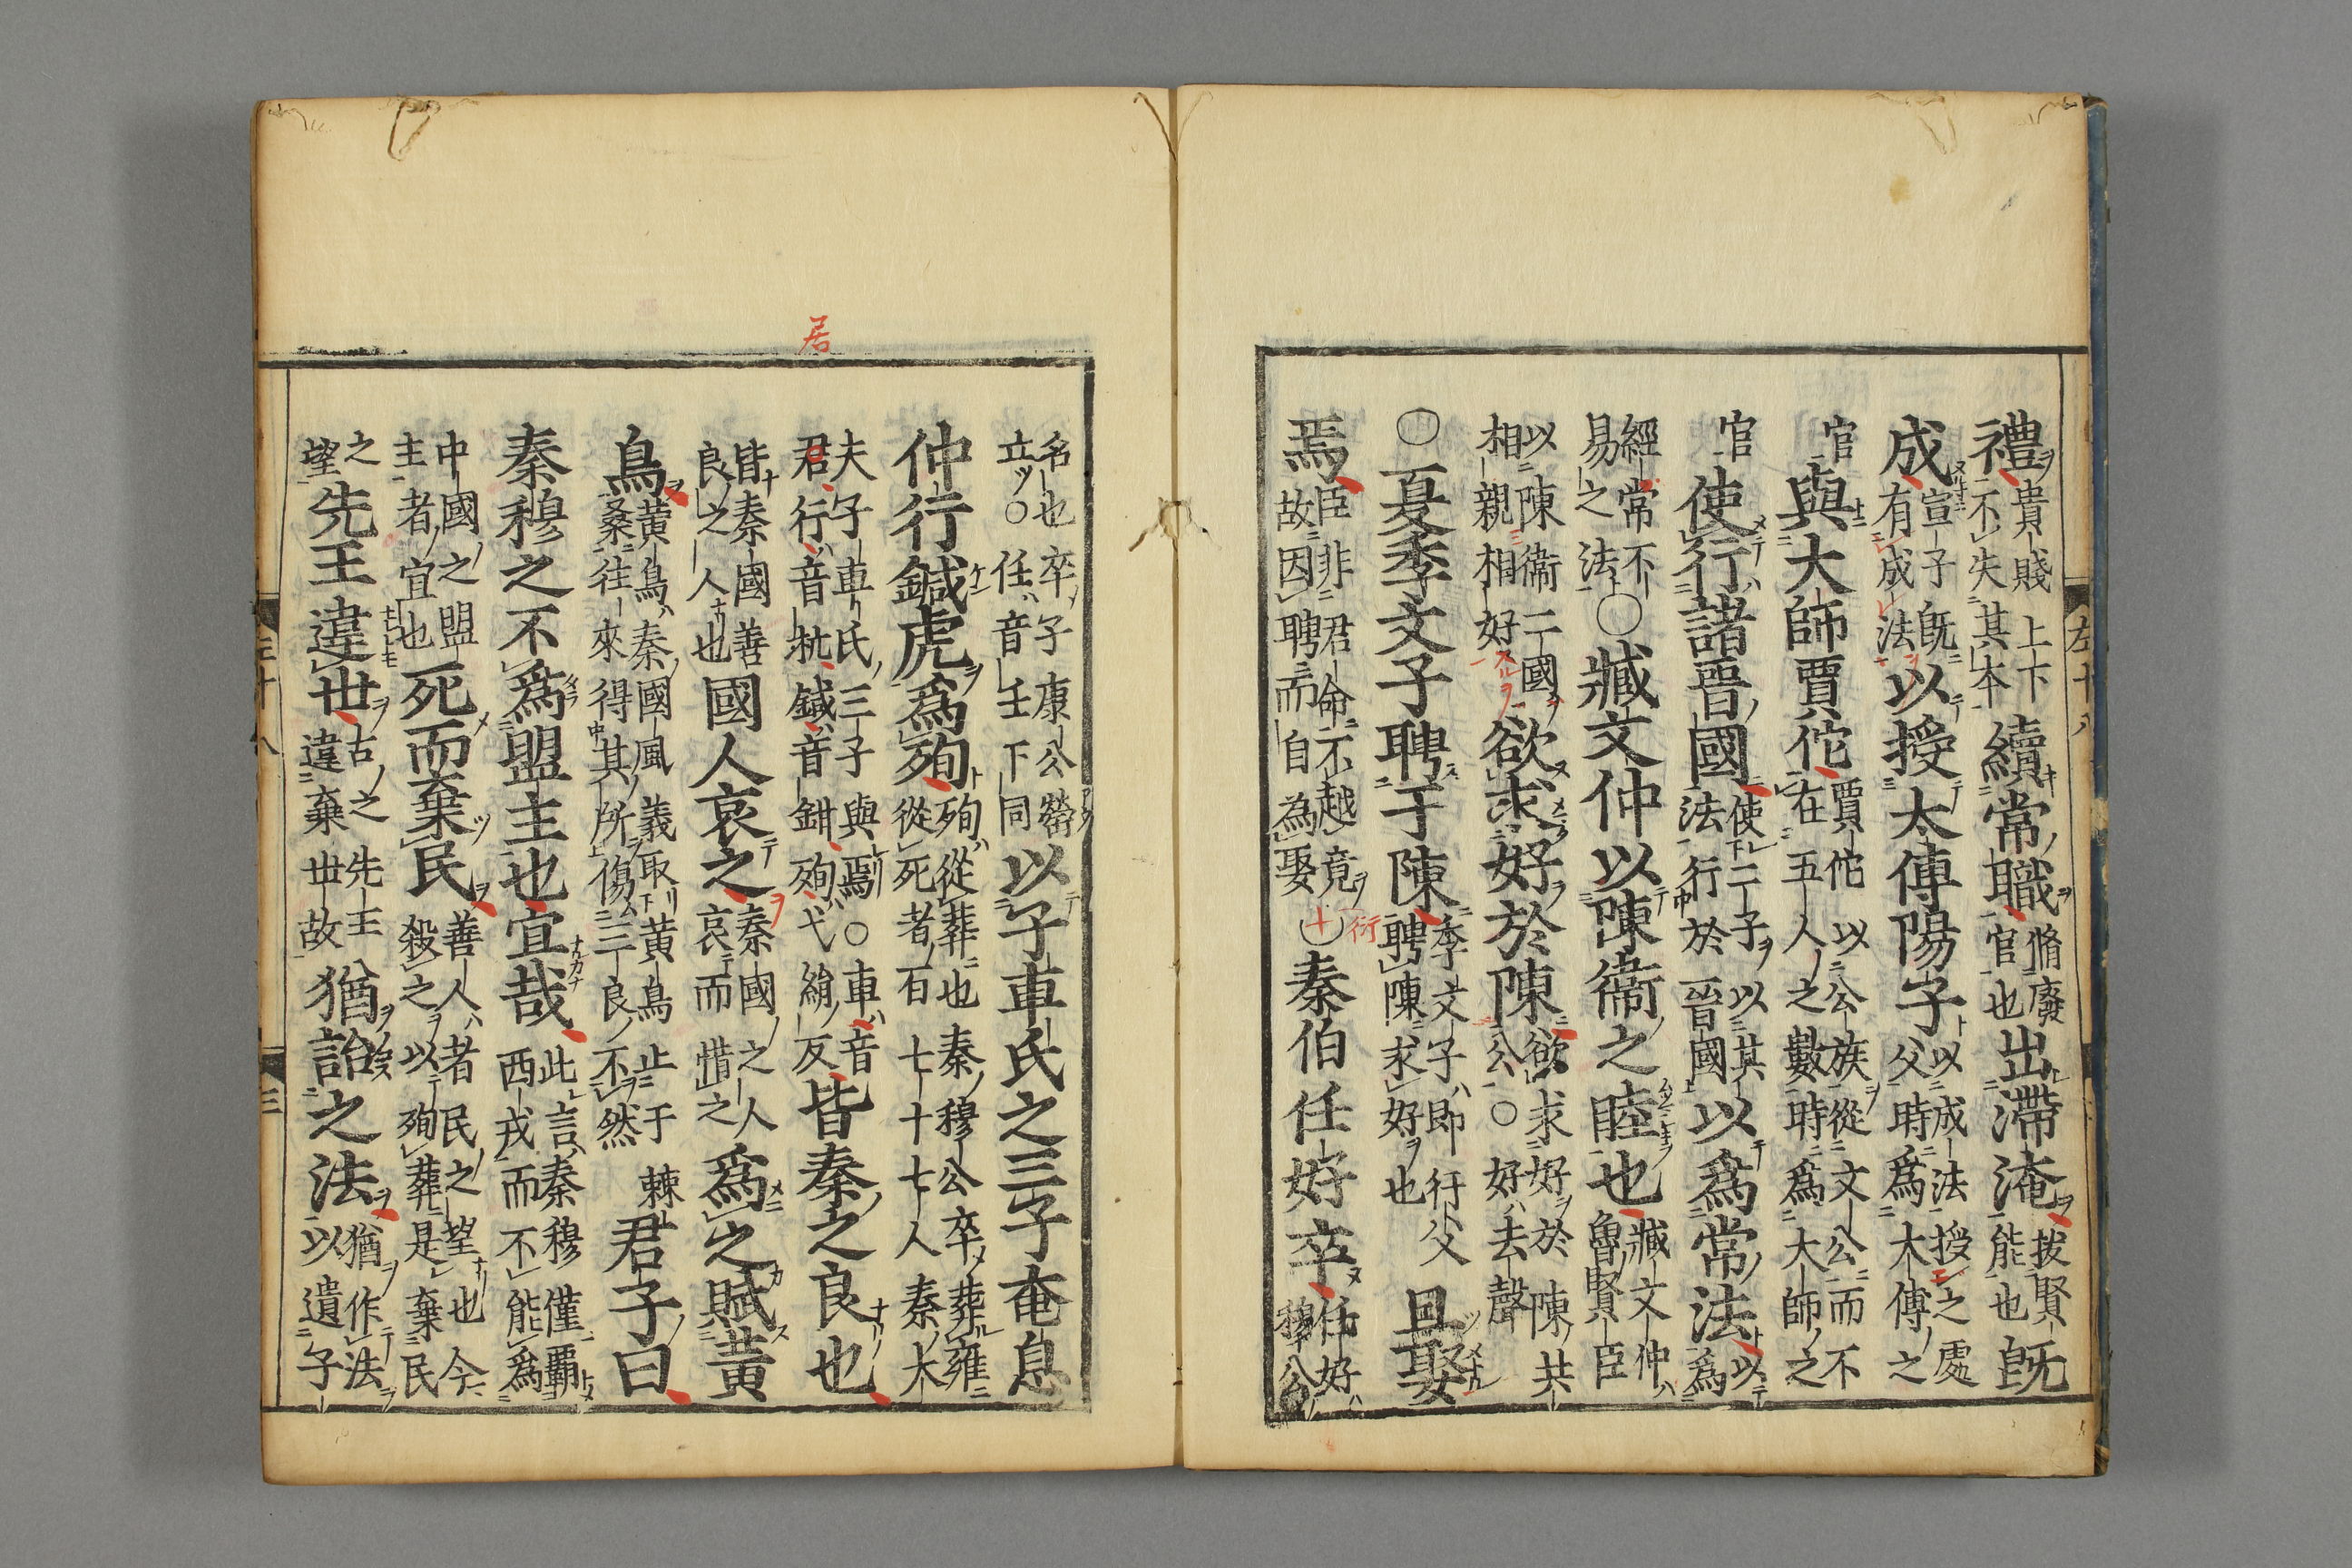 左十八
禮貴賤上下不失其本續常職脩廢官也出滯淹拔賢能也既
成宣子既有成法以授太傅陽子以成法授之處父時爲太傅之
官與大師賈佗賈佗以公族從文公而不在五人之數時爲大師之
官使行諸晉國使二子以其法行於晉國以爲常法以爲
經常不易之法○臧文仲以陳衞之睦也臧文仲魯賢臣
以陳衞二國相親相好欲求好於陳欲求好於陳共公○好去聲
○夏季文子聘于陳季文子即行父聘陳求好也且娶
焉臣非君命不越竟故因聘而自為娶○秦伯任好卒任好穆公
衍
居
名也卒子康公罃立○任音壬下同以子車氏之三子奄息
仲行鍼虎爲殉殉從葬也秦穆公卒葬雍從死者百七十七人秦大
夫子車氏三子與焉○車音君行音杭鍼音鉗殉弋絹反皆秦之良也
皆秦國善良之人也國人哀之秦國之人哀而惜之爲之賦黃
鳥黃鳥秦國風義取黃鳥止于棘桑往來得其所傷三良不然君子曰
秦穆之不爲盟主也宜哉此言秦穆僅霸西戎而不能爲
中國之盟主者宜也死而棄民善人者民之望也今殺之以殉葬是棄民
之望先王違世古之先王違棄世故猶詒之法猶作法以遺子
三